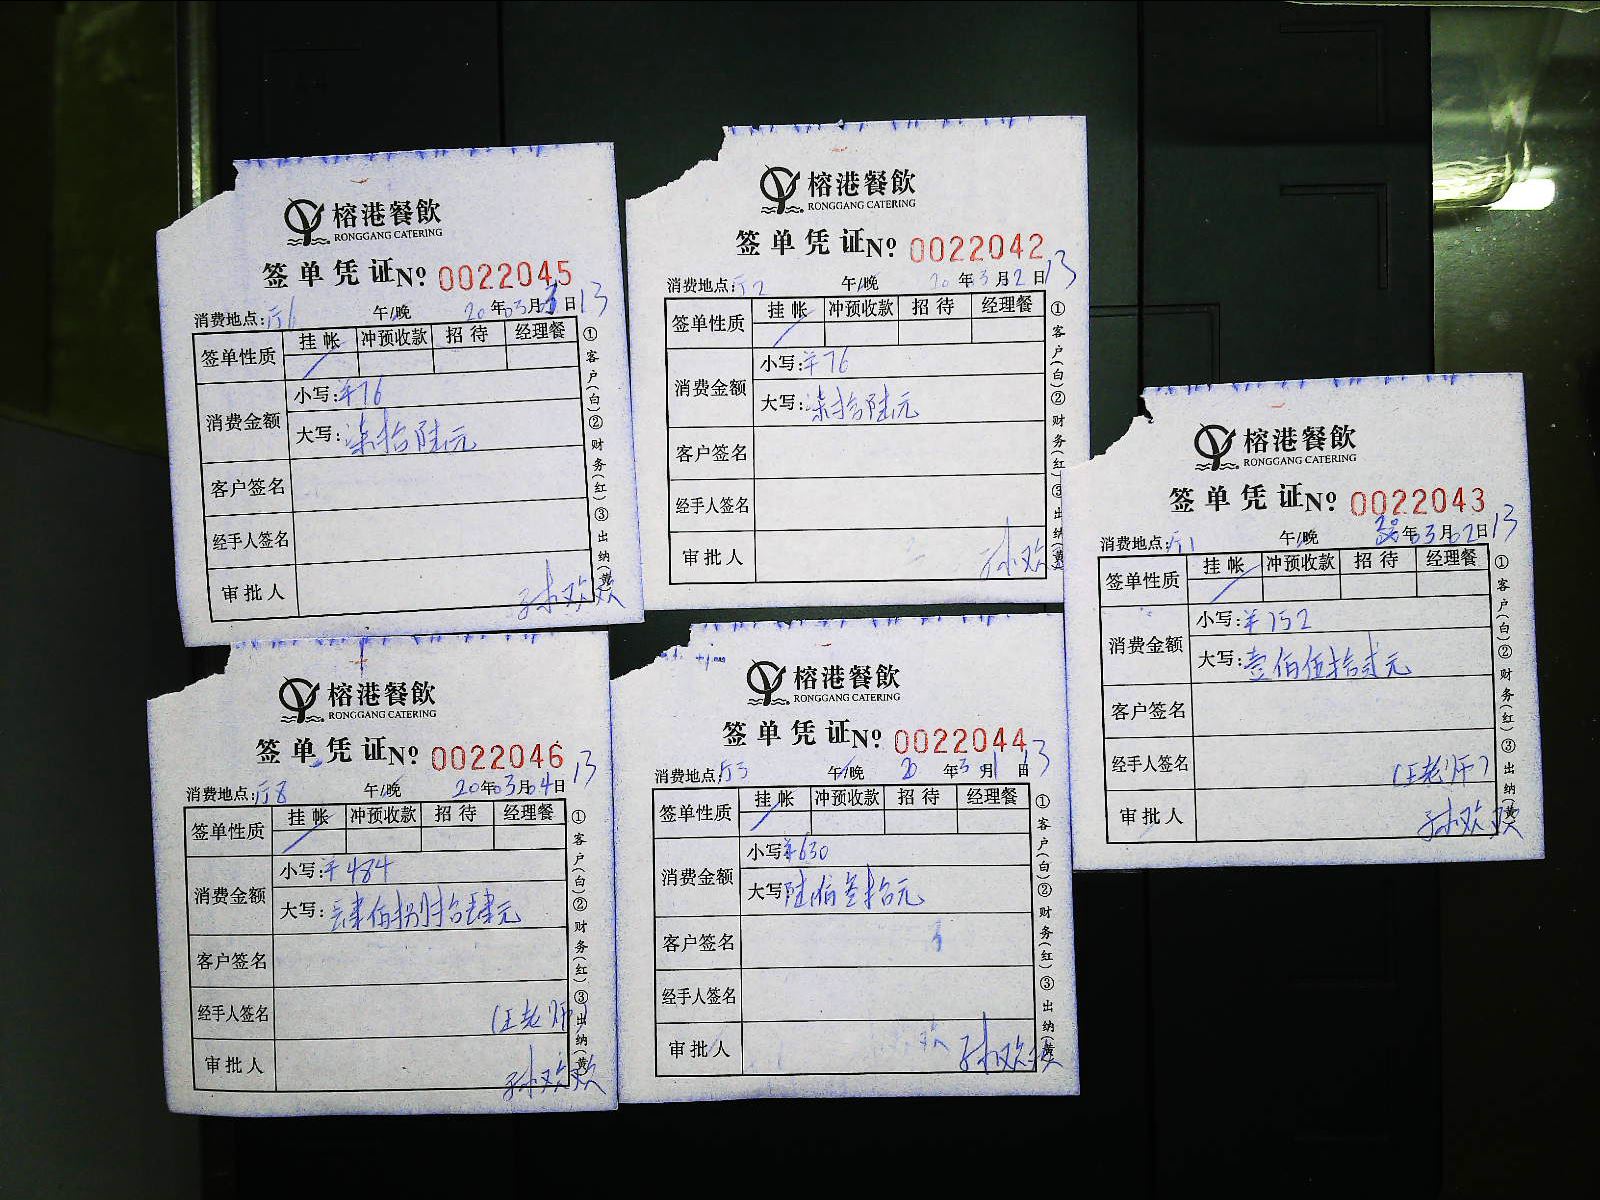 榕港餐飲
RONGGANG CATERING
签单凭证No 0022045
消费地点:厅6 午/晚 20 年03月03日 13
签单性质 挂帐 冲预收款 招待 经理餐
消费金额 小写:¥76
大写:柒拾陆元
客户签名
经手人签名
审批人 孙欢欢
①客户(白)②财务(红)③出纳(黄)
榕港餐飲
RONGGANG CATERING
签单凭证No 0022042
消费地点:厅2 午/晚 20 年3月2日 13
签单性质 挂帐 冲预收款 招待 经理餐
消费金额 小写:¥76
大写:柒拾陆元
客户签名
经手人签名
审批人 孙欢
①客户(白)②财务(红)③出纳(黄)
榕港餐飲
RONGGANG CATERING
签单凭证No 0022043
消费地点:厅1 午/晚 年03月02日 13
签单性质 挂帐 冲预收款 招待 经理餐
消费金额 小写:¥152
大写:壹佰伍拾贰元
客户签名
经手人签名 (王老师)
审批人 孙欢欢
①客户(白)②财务(红)③出纳(黄)
榕港餐飲
RONGGANG CATERING
签单凭证No 0022046
消费地点:厅8 午/晚 20年03月04日 13
签单性质 挂帐 冲预收款 招待 经理餐
消费金额 小写:¥484
大写:肆佰捌拾肆元
客户签名
经手人签名 (王老师)
审批人 孙欢欢
①客户(白)②财务(红)③出纳(黄)
榕港餐飲
RONGGANG CATERING
签单凭证No 0022044
消费地点:厅3 午/晚 20 年3月1日 13
签单性质 挂帐 冲预收款 招待 经理餐
消费金额 小写:¥630
大写:陆佰叁拾元
客户签名
经手人签名
审批人 孙欢欢
①客户(白)②财务(红)③出纳(黄)